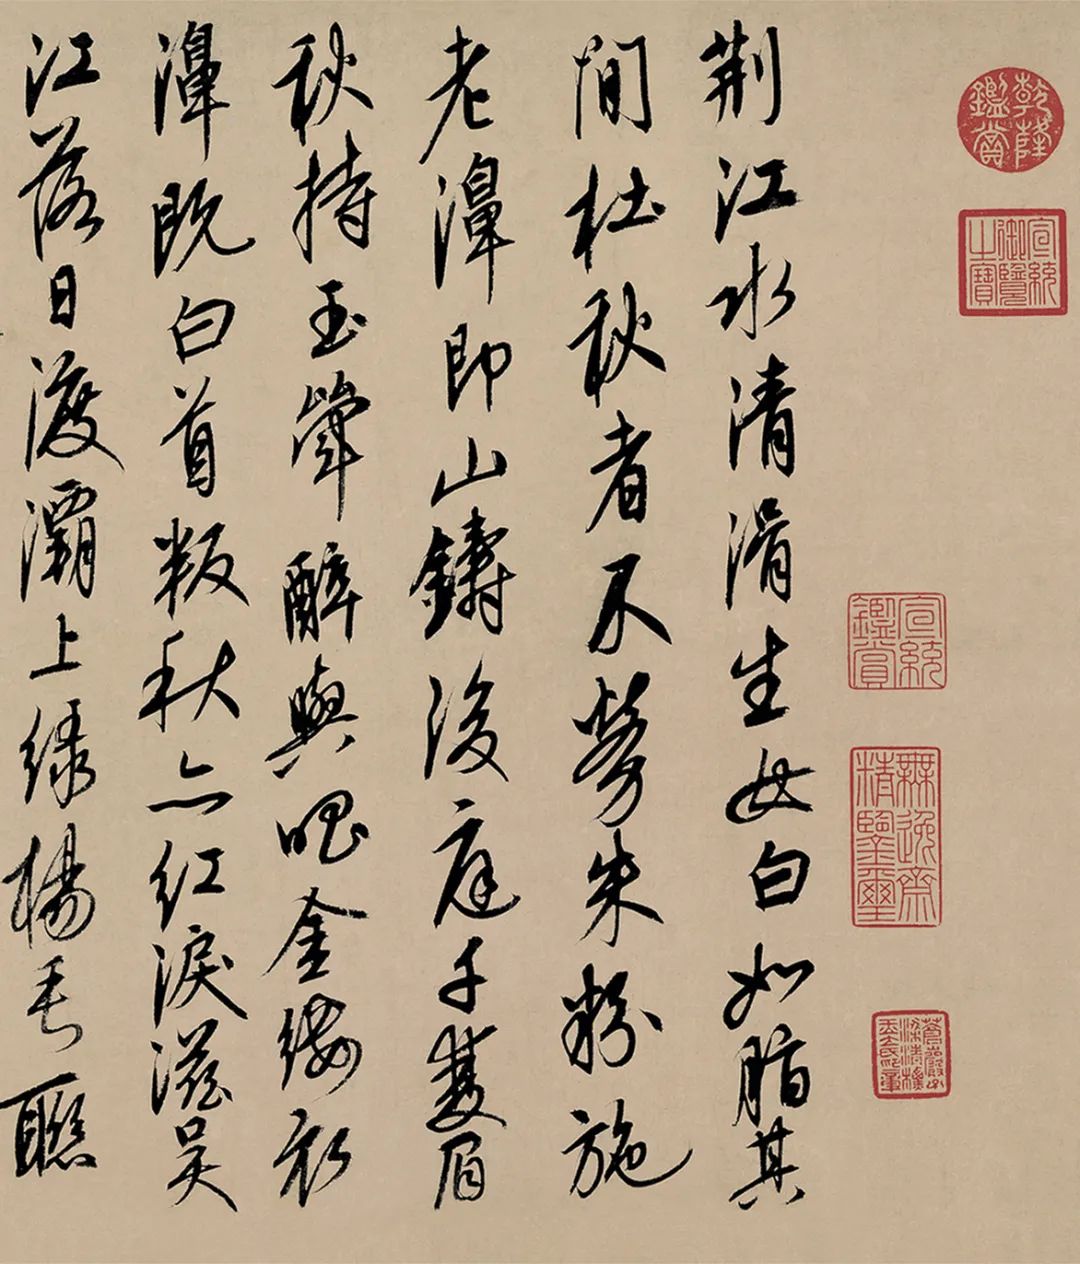 乾隆鑑賞
宣統御覽之寶
宣統鑑賞
無逸齋精鑒璽
蒼巖子梁清標玉立氏印章
荆江水清滑生女白如脂其
間杜秋者不勞朱粉施
老濞即山鑄後庭千雙眉
秋持玉斝醉與唱金縷衣
濞既白首叛秋亦紅淚滋吳
江落日渡灞上綠楊垂聯